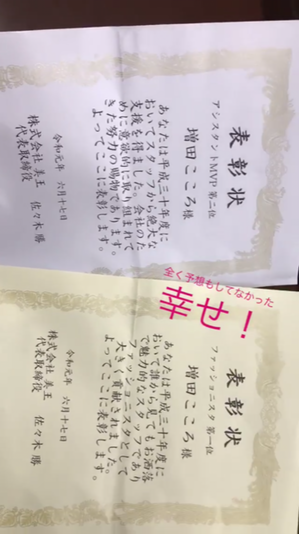 表彰状
アシスタントMVP 第二位
増田こころ様
あなたは平成三十年度に
おいてスタッフから絶大な
支援を得ました。会社のた
めに意欲的に取り組まれて
きた努力の賜物であります。
よってここに表彰します。
令和元年 六月十七日
株式会社 美王
代表取締役 佐々木 勝
全く予想もしてなかった
幸せ！
表彰状
ファッショニスタ 第一位
増田こころ様
あなたは平成三十年度に
おいて誰から見てもお洒落
で魅力的なスタッフであり
ファッショニスタとして
大きく貢献されました。
よってここに表彰します。
令和元年 六月十七日
株式会社 美王
代表取締役 佐々木 勝